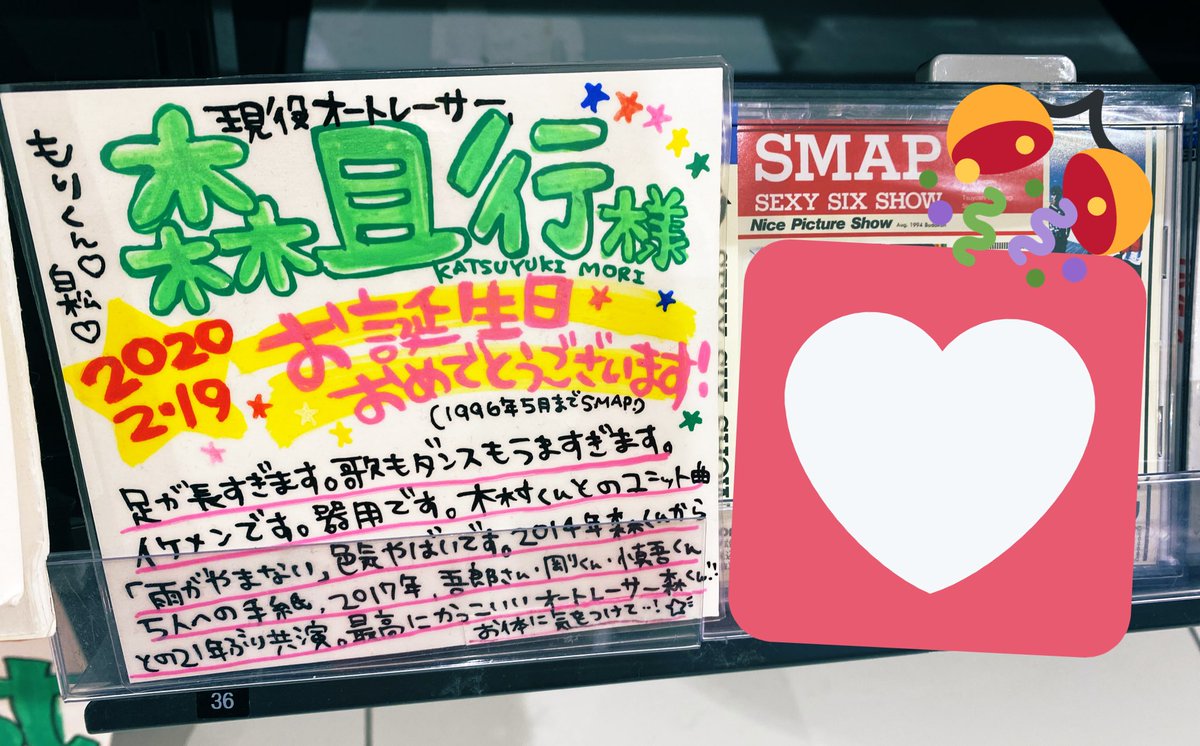 もりくん♡
白松♡
現役オートレーサー、
森且行様
KATSUYUKI MORI
2020
2・19
お誕生日
おめでとうございます!
(1996年5月までSMAP!)
足が長すぎます。歌もダンスもうますぎます。
イケメンです。器用です。木村くんとのユニット曲
「雨がやまない」色気やばいです。2014年森くんから
5人への手紙、2017年、吾郎さん・剛くん・慎吾くん
との21年ぶり共演。最高にかっこいいオートレーサー森くん!!
お体に気をつけて…!☆彡
36
SMAP
SEXY SIX SHOW
Nice Picture Show Aug. 1994